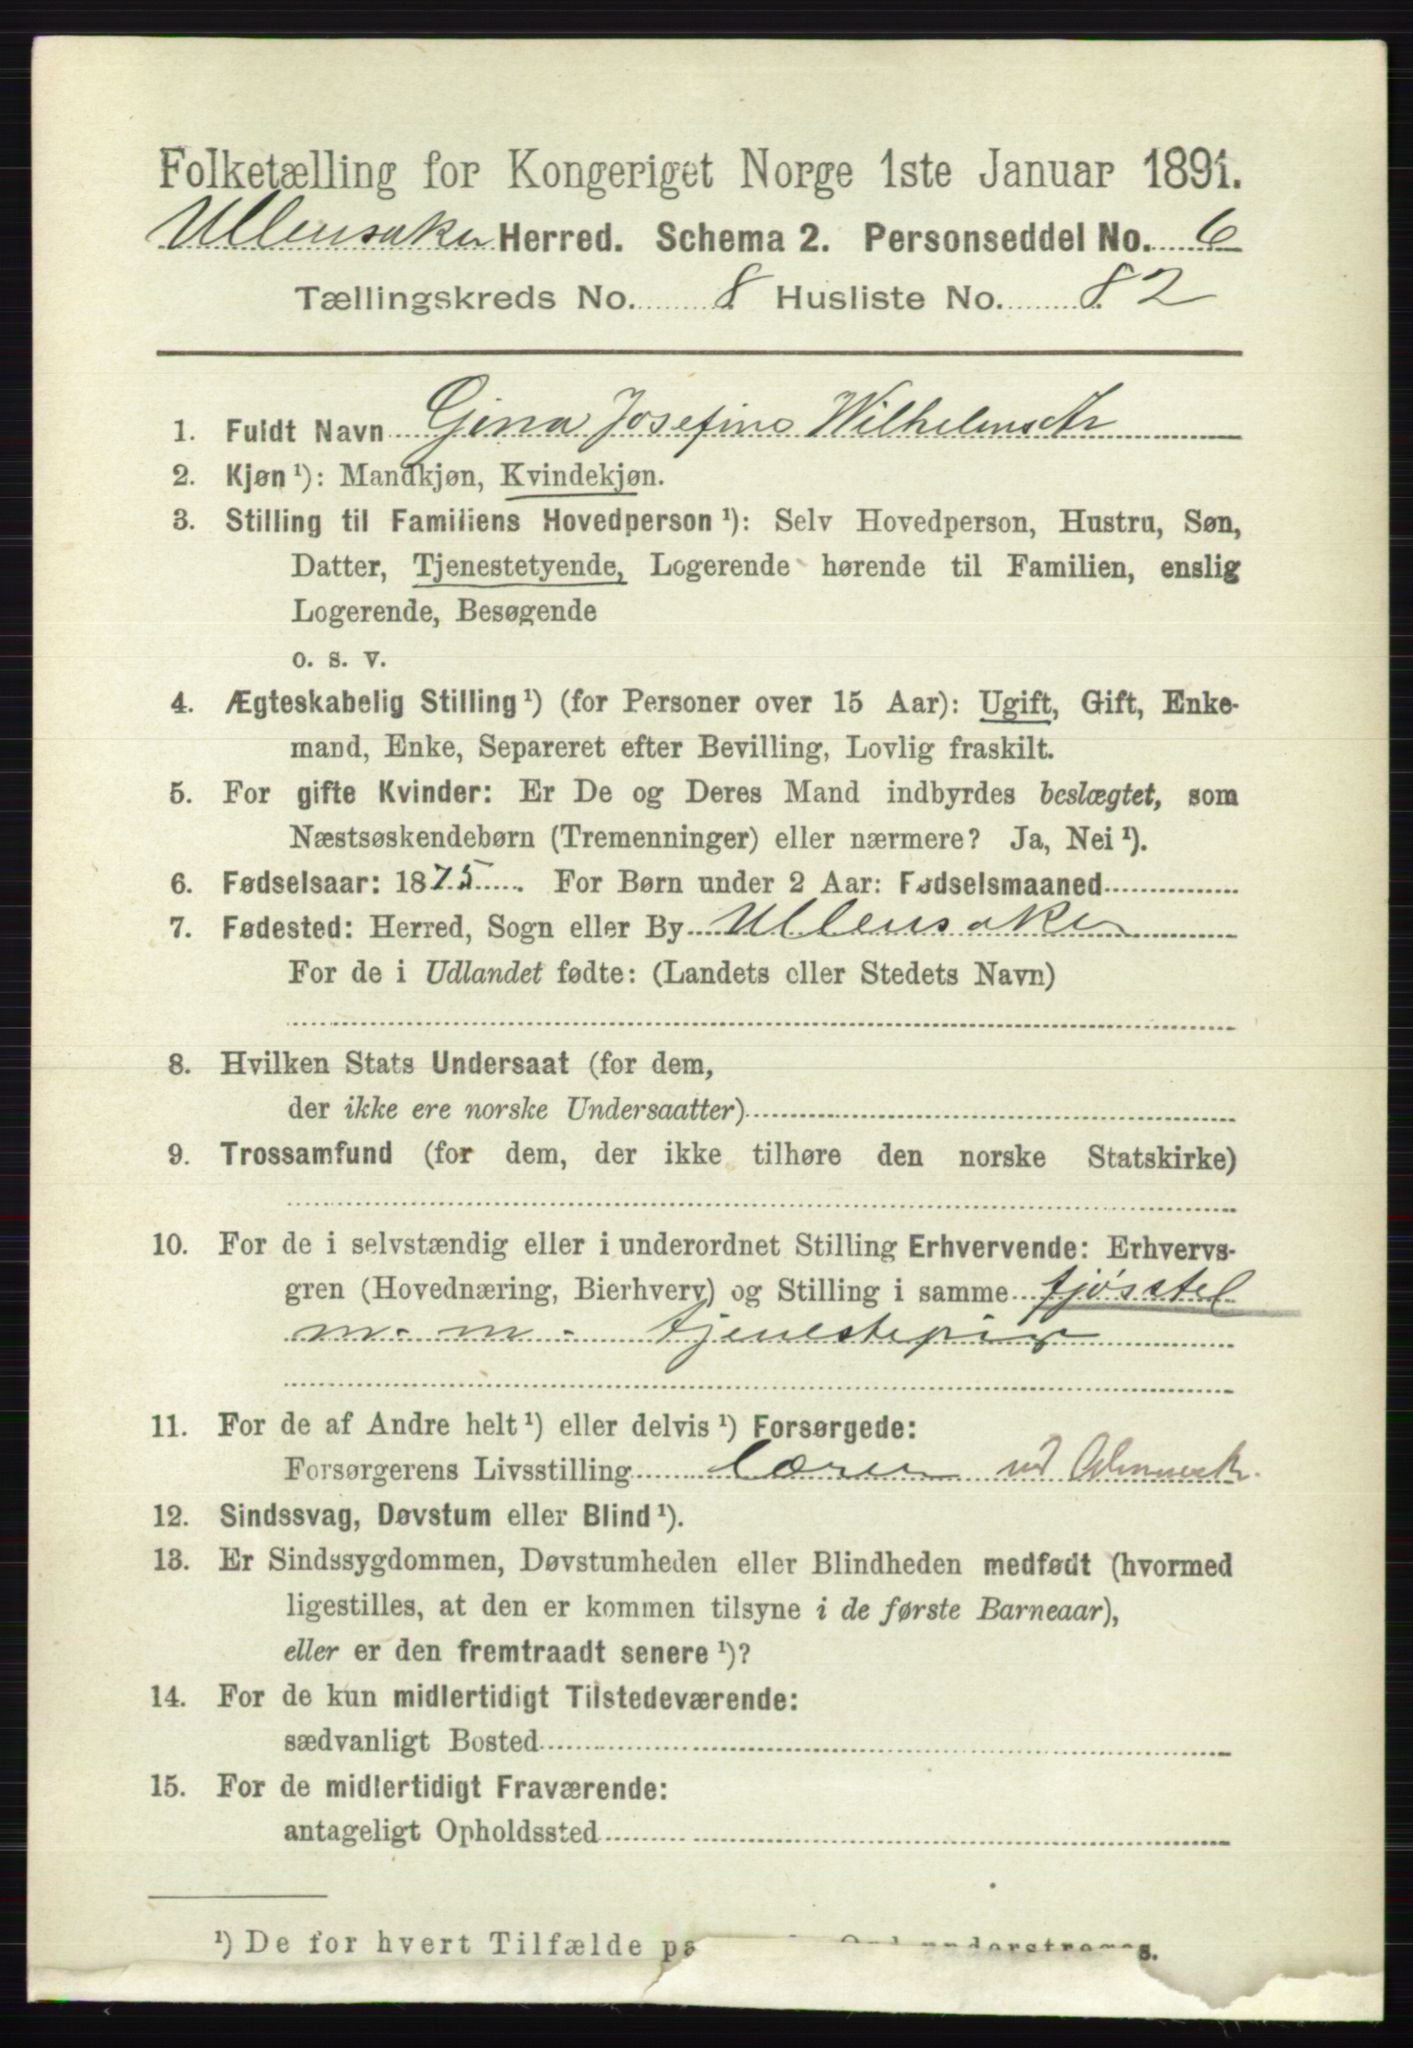 Folketælling for Kongeriget Norge 1ste Januar 1891.
Ullensaker Herred. Schema 2. Personseddel No. 6
Tællingskreds No. 8 Husliste No. 82
1. Fuldt Navn Gina Josefine Wilhelmsdtr
2. Kjøn ¹): Mandkjøn, Kvindekjøn.
3. Stilling til Familiens Hovedperson ¹): Selv Hovedperson, Hustru, Søn,
Datter, Tjenestetyende, Logerende hørende til Familien, enslig
Logerende, Besøgende
o. s. v.
4. Ægteskabelig Stilling ¹) (for Personer over 15 Aar): Ugift, Gift, Enke-
mand, Enke, Separeret efter Bevilling, Lovlig fraskilt.
5. For gifte Kvinder: Er De og Deres Mand indbyrdes beslægtet, som
Næstsøskendebørn (Tremenninger) eller nærmere? Ja, Nei ¹).
6. Fødselsaar: 1875. For Børn under 2 Aar: Fødselsmaaned
7. Fødested: Herred, Sogn eller By Ullensaker
For de i Udlandet fødte: (Landets eller Stedets Navn)
8. Hvilken Stats Undersaat (for dem,
der ikke ere norske Undersaatter)
9. Trossamfund (for dem, der ikke tilhøre den norske Statskirke)
10. For de i selvstændig eller i underordnet Stilling Erhvervende: Erhvervs-
gren (Hovednæring, Bierhverv) og Stilling i samme fjösstel
m. m. tjenestepige
11. For de af Andre helt ¹) eller delvis ¹) Forsørgede:
Forsørgerens Livsstilling
12. Sindssvag, Døvstum eller Blind ¹).
13. Er Sindssygdommen, Døvstumheden eller Blindheden medfødt (hvormed
ligestilles, at den er kommen tilsyne i de første Barneaar),
eller er den fremtraadt senere ¹)?
14. For de kun midlertidigt Tilstedeværende:
sædvanligt Bosted
15. For de midlertidigt Fraværende:
antageligt Opholdssted
¹) De for hvert Tilfælde understreges.